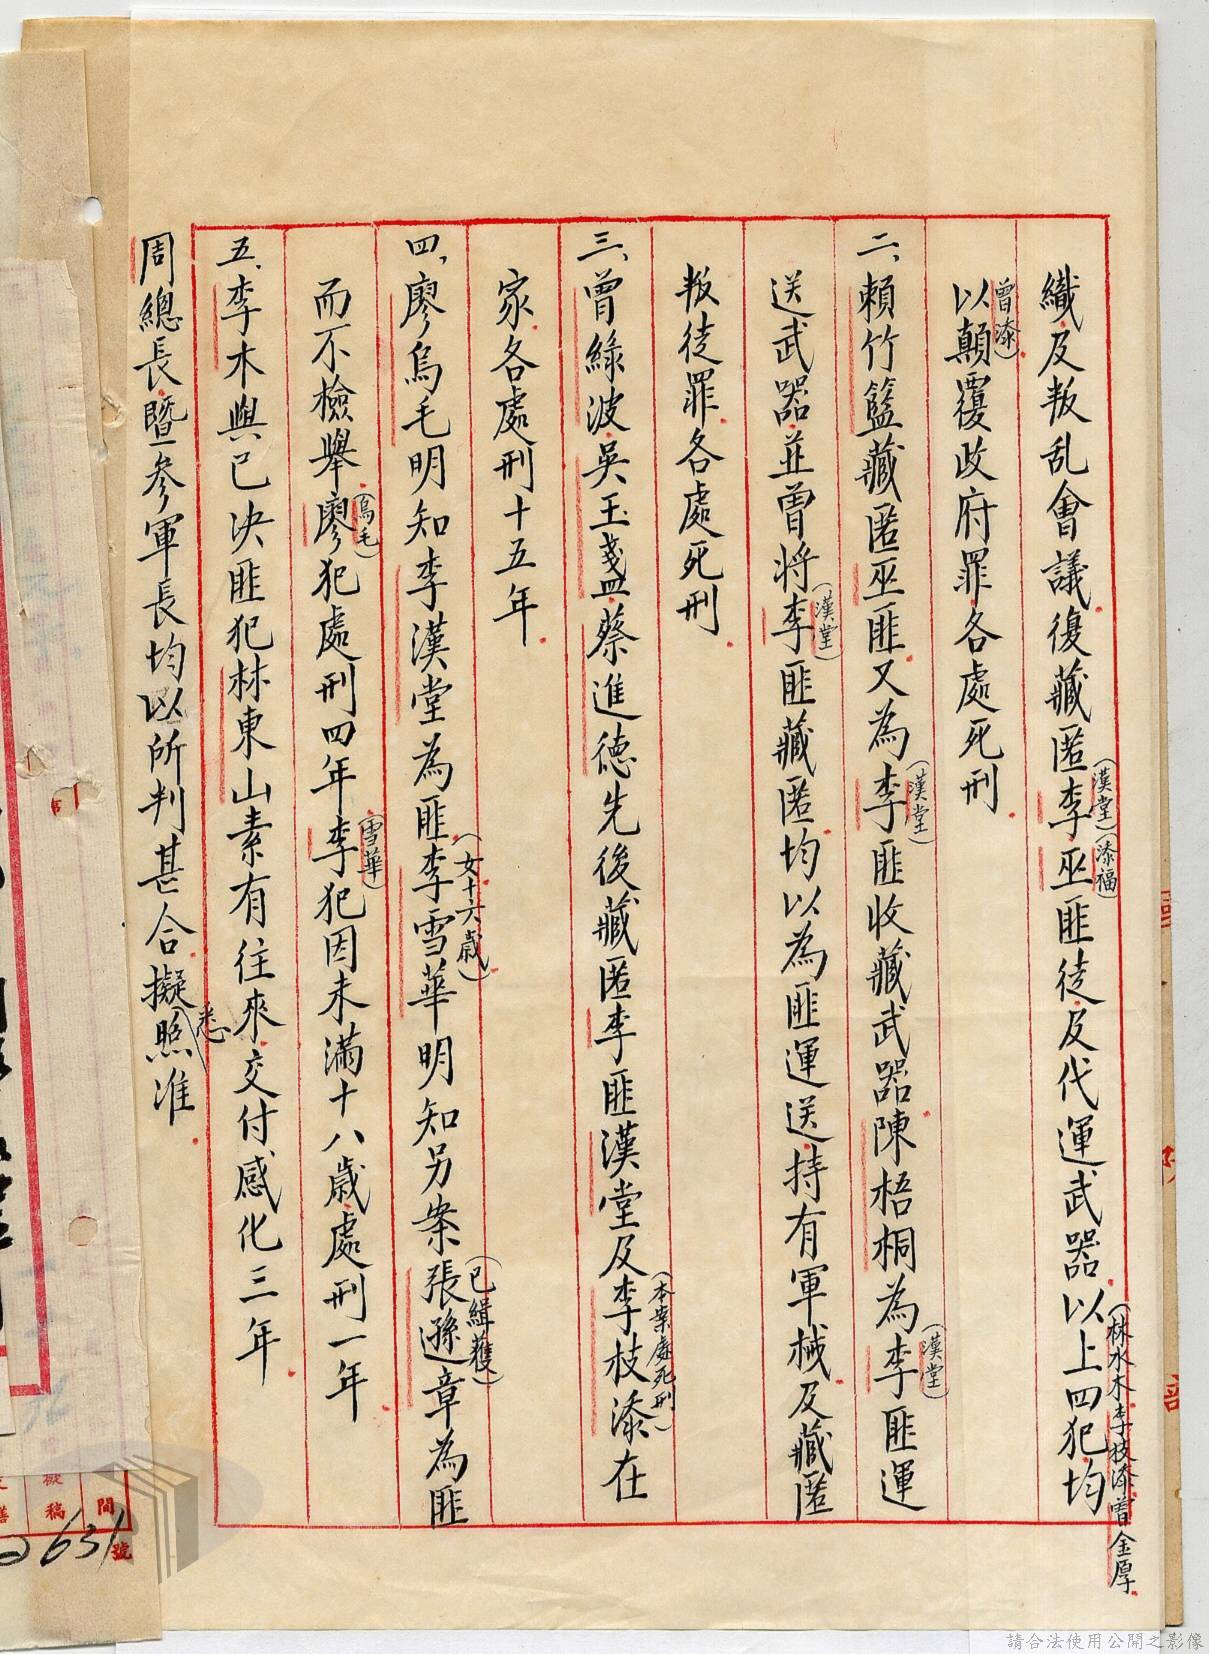 織及叛乱會議復藏匿李(漢堂)巫(添福)匪徒及代運武器以上四犯(林水木李枝添曾金厚均
曾添)以顛覆政府罪各處死刑
二、賴竹籃藏匿巫匪又為李(漢堂)匪收藏武器陳梧桐為李(漢堂)匪運
送武器並曾將李(漢堂)匪藏匿均以為匪運送持有軍械及藏匿
叛徒罪各處死刑
三、曾綠波吳玉盞蔡進德先後藏匿李匪漢堂及李枝添(本案處死刑)在
家各處刑十五年
四、廖烏毛明知李漢堂為匪李雪華(女十六歲)明知另案張遜章(已緝獲)為匪
而不檢舉廖(烏毛)犯處刑四年李(雪華)犯因未滿十八歲處刑一年
五、李木與已決匪犯林東山素有往來交付感化三年
周總長暨參軍長均以所判甚合擬悉照准
擬稿
間
號
2631
請合法使用公開之影像